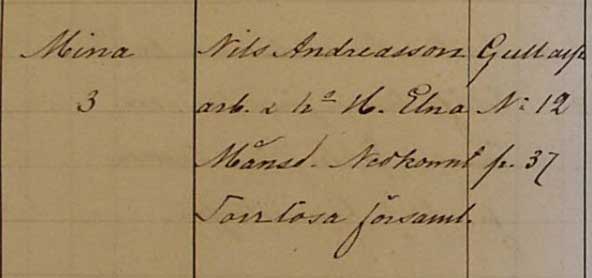 Mina Nils Andreasson Gullarp
3 arb. & h° H. Elna N: 12
Månsd. Nedkomnt p. 37
Torrlösa församl.